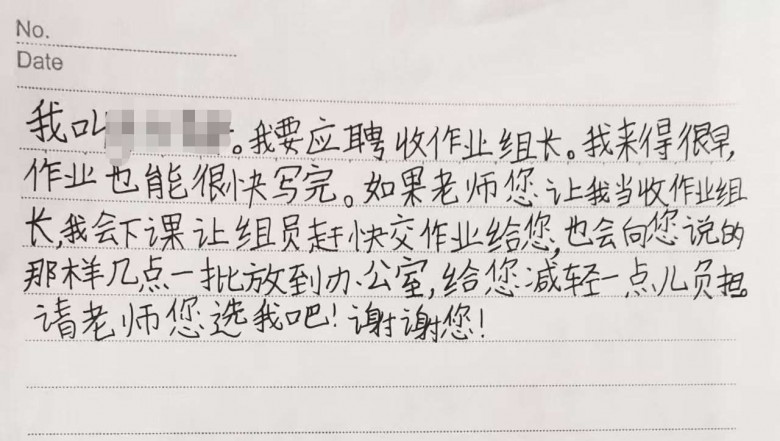 No.
Date
我叫。我要应聘收作业组长。我来得很早,
作业也能很快写完。如果老师您让我当收作业组
长,我会下课让组员赶快交作业给您,也会向您说的
那样几点一批放到办公室,给您减轻一点儿负担。
请老师您选我吧!谢谢您!